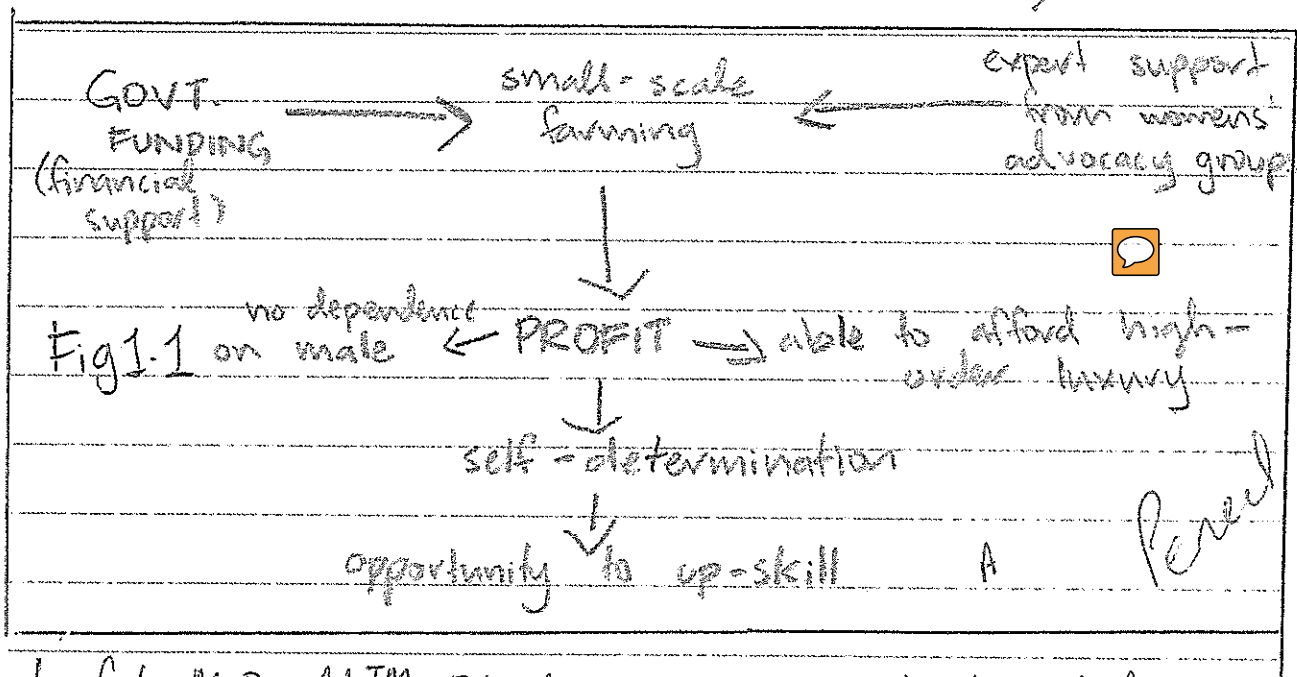 GOVT.
FUNDING
(financial
support)
small-scale
farming
expert support
from womens'
advocacy group
Fig 1.1
no dependence
on male
PROFIT
able to afford high-
order luxury
self-determination
opportunity to up-skill
A
Pencil